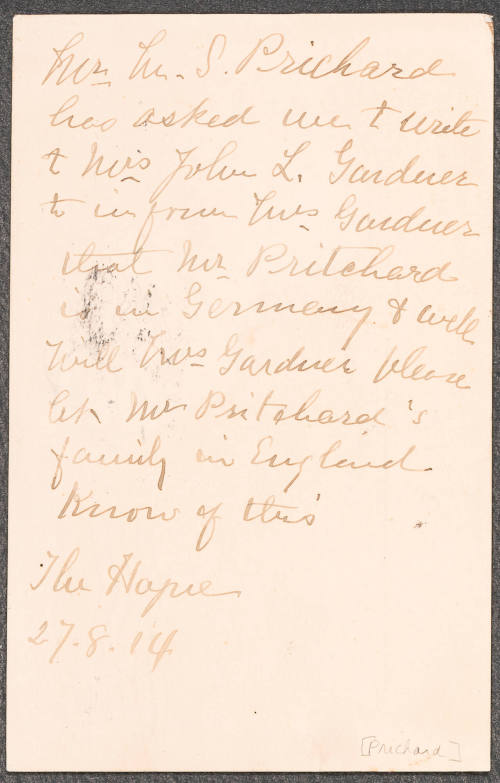 Mr. M. S. Prichard
has asked me to write
to Mrs John L. Gardner
to inform Mrs Gardner
that Mr. Pritchard
is in Germany & well
Will Mrs Gardner please
let Mr Pritchard's
family in England
Know of this
The Hague
27.8.14
[Prichard]